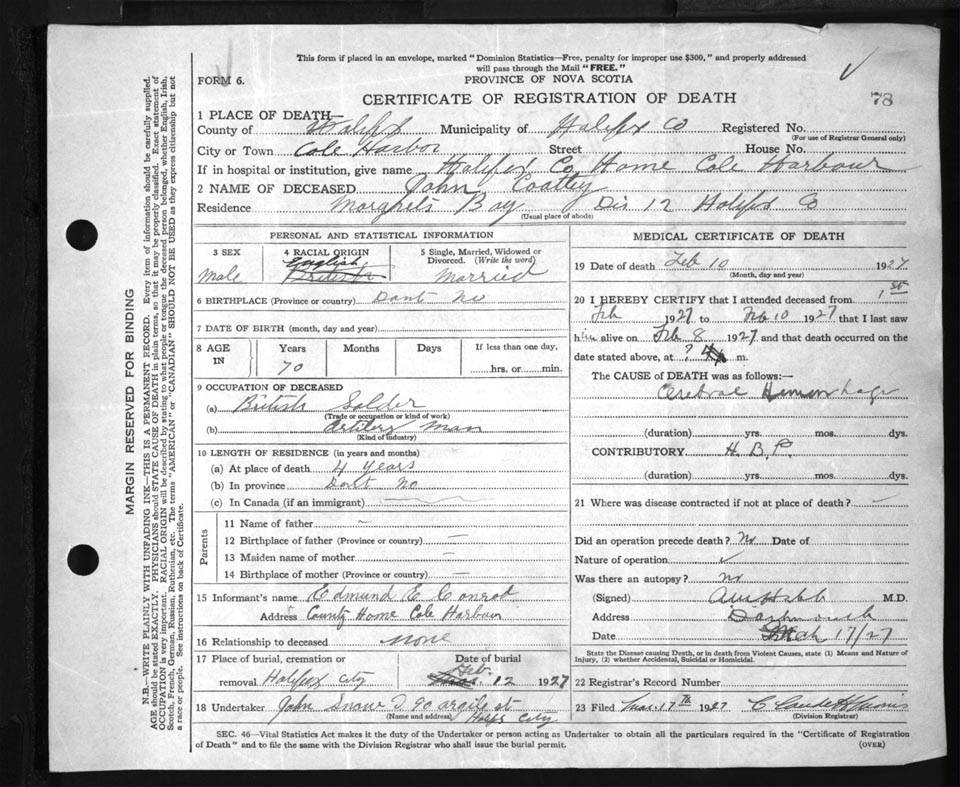 This form if placed in an envelope, marked "Dominion Statistics—Free, penalty for improper use $300," and properly addressed
will pass through the Mail "FREE."
FORM 6.
PROVINCE OF NOVA SCOTIA
78
CERTIFICATE OF REGISTRATION OF DEATH
1 PLACE OF DEATH
County of Halifax Municipality of Halifx Co Registered No.
(For use of Registrar General only)
City or Town Cole Harbor Street House No.
If in hospital or institution, give name Halifx Co Home Cole Harbour
2 NAME OF DECEASED John Coatley
Residence Margrets Bay Dis 12 Halifx Co
(Usual place of abode)
PERSONAL AND STATISTICAL INFORMATION
3 SEX 4 RACIAL ORIGIN 5 Single, Married, Widowed or
Divorced. (Write the word)
Male English British Married
6 BIRTHPLACE (Province or country) Dont No
7 DATE OF BIRTH (month, day and year)
8 AGE IN Years Months Days If less than one day,
70 hrs. or min.
9 OCCUPATION OF DECEASED
(a) British Solder
(Trade or occupation or kind of work)
(b) Artilery Man
(Kind of industry)
10 LENGTH OF RESIDENCE (in years and months)
(a) At place of death 4 years
(b) In province Dont No
(c) In Canada (if an immigrant)
Parents
11 Name of father —
12 Birthplace of father (Province or country) —
13 Maiden name of mother —
14 Birthplace of mother (Province or country) —
15 Informant's name Edmund C Conrod
Address County Home Cole Harbour
16 Relationship to deceased none
17 Place of burial, cremation or Date of burial
removal Halifax City Feb. 12 1927
18 Undertaker John Snow 90 argile st
(Name and address) Halifx City
MEDICAL CERTIFICATE OF DEATH
19 Date of death Feb 10 1927
(Month, day and year)
20 I HEREBY CERTIFY that I attended deceased from 1st
Feb 1927 to Feb 10 1927 that I last saw
him alive on Feb 8 1927 and that death occurred on the
date stated above, at ? m.
The CAUSE OF DEATH was as follows:—
Cerebral Hemorrhage
(duration) yrs. mos. dys.
CONTRIBUTORY H. B. P.
(duration) yrs. mos. dys.
21 Where was disease contracted if not at place of death? —
Did an operation precede death? No Date of
Nature of operation
Was there an autopsy? no
(Signed) M.D.
Address Dartmouth
Date Mch 17/27
State the Disease causing Death, or in death from Violent Causes, state (1) Means and Nature of
Injury, (2) whether Accidental, Suicidal or Homicidal.
22 Registrar's Record Number
23 Filed Mar. 17th 1927
(Division Registrar)
SEC. 46—Vital Statistics Act makes it the duty of the Undertaker or person acting as Undertaker to obtain all the particulars required in the "Certificate of Registration
of Death" and to file the same with the Division Registrar who shall issue the burial permit.
(OVER)
MARGIN RESERVED FOR BINDING
N.B.—WRITE PLAINLY WITH UNFADING INK—THIS IS A PERMANENT RECORD. Every item of information should be carefully supplied.
AGE should be stated EXACTLY. PHYSICIANS should STATE CAUSE OF DEATH in plain terms, so that it may be properly classified. Exact statement of
OCCUPATION is very important. RACIAL ORIGIN will be described by stating to what people or tongue the deceased person belonged, whether English, Irish,
Scotch, French, German, Russian, Ruthenian, etc. The terms "AMERICAN" or "CANADIAN" SHOULD NOT BE USED as they express citizenship but not
a race or people. See instructions on back of Certificate.